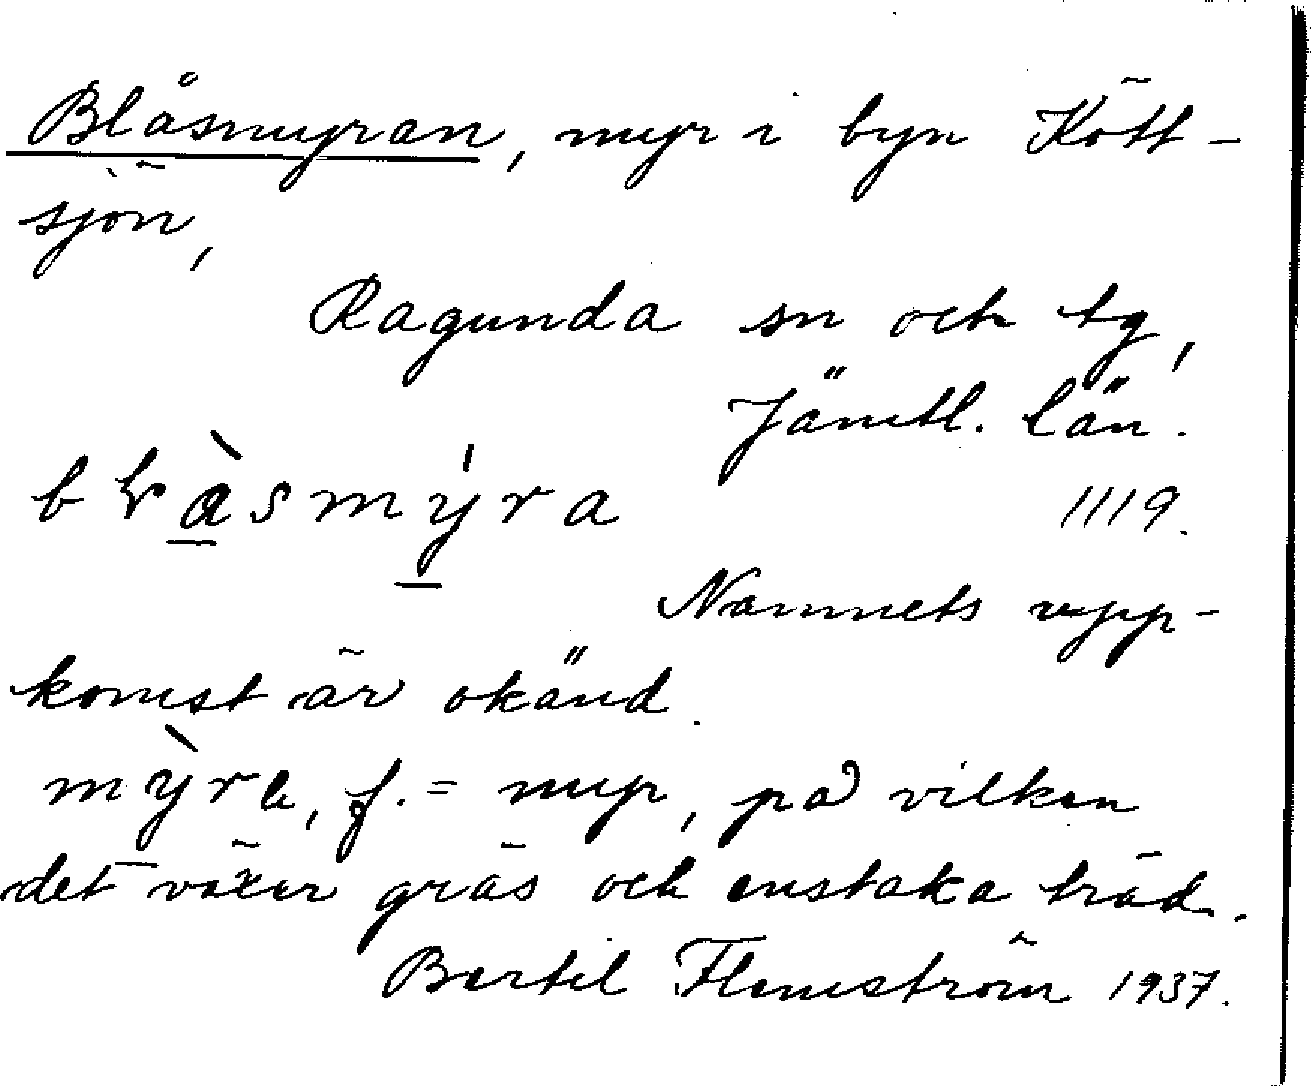 Blåsmyran, myr i byn Kött-
sjön,
Ragunda sn och tg,
Jämtl. län.
blàsmýra 1119.
Namnets upp-
komst är okänd.
mỳra, f. = myr, på vilken
det växer gräs och enstaka träd.
Bertil Flemström 1937.